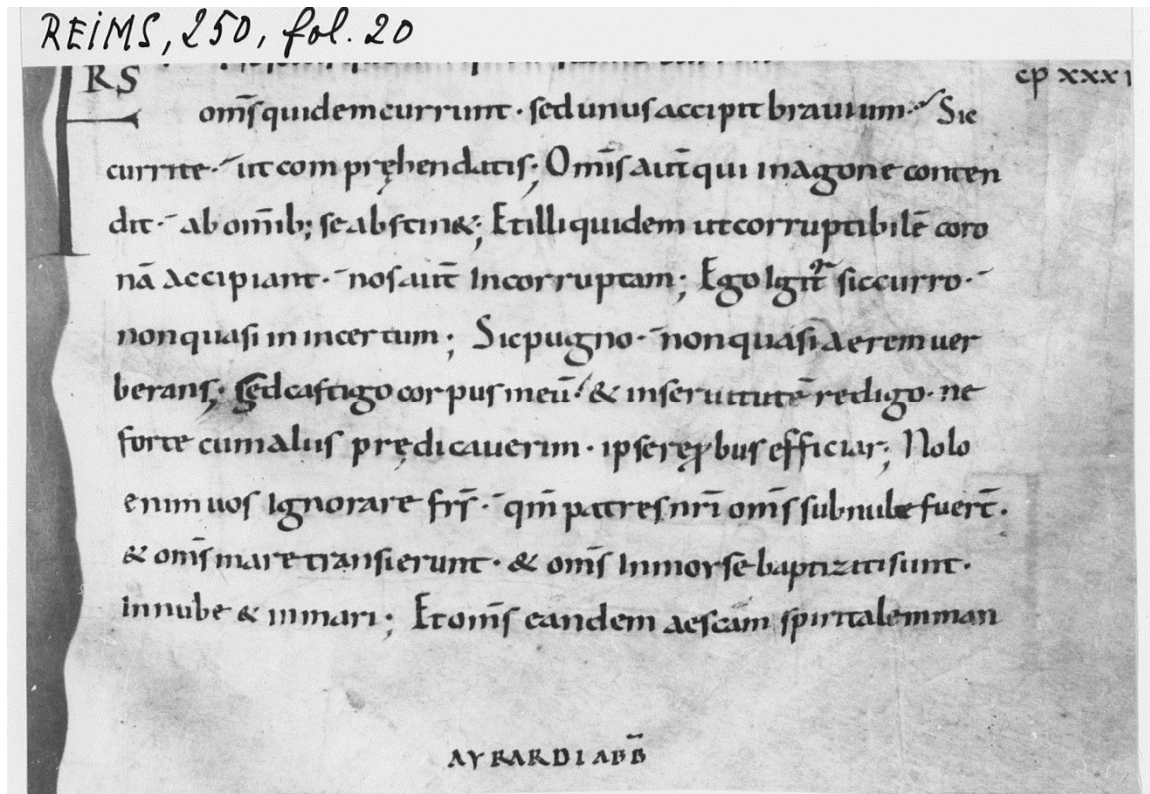 REIMS, 250, fol. 20
FRS
cp xxxi
om̅s quidem currunt · sed unus accipit brauium · Sic
currite · ut compręhendatis; Om̅s aut̅ qui in agone conten
dit · ab om̅ib; se abstin&; Et illi quidem ut corruptibile̅ coro
na̅ accipiant · nos aut̅ Incorruptam; Ego Igit̅ sic curro ·
non quasi in incertum; Sic pugno · non quasi aerem uer
berans; Sed castigo corpus meu̅ & in seruitute̅ redigo · ne
forte cum aliis prędicauerim · ipse rep̱bus efficiar; Nolo
enim uos Ignorare fr̅s · qm̅ patres nr̅i om̅s sub nube fuer̅t ·
& om̅s mare transierunt · & om̅s In moyse baptizati sunt ·
In nube & in mari; Et om̅s eandem aescam spiritalem man
AYRARDI ABB̅